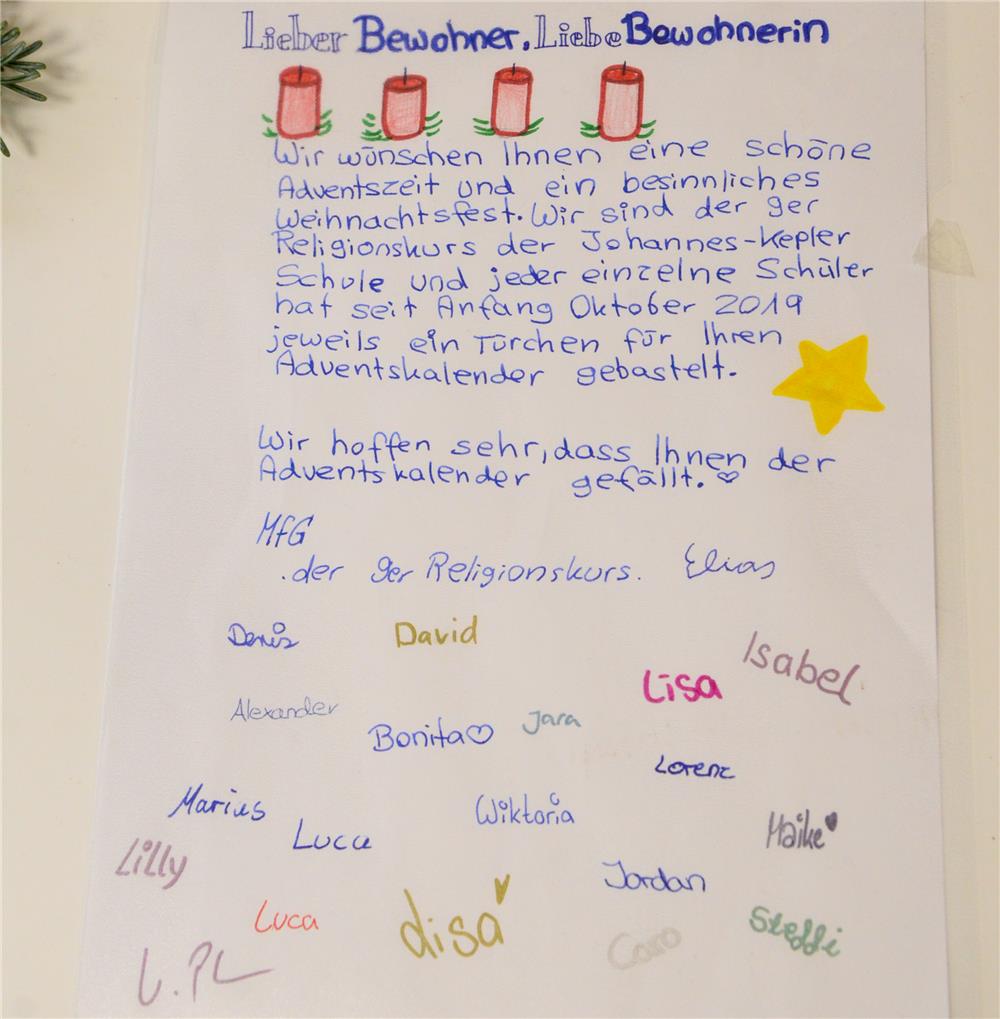 Lieber Bewohner, Liebe Bewohnerin
Wir wünschen Ihnen eine schöne
Adventszeit und ein besinnliches
Weihnachtsfest. Wir sind der 9er
Religionskurs der Johannes-Kepler
Schule und jeder einzelne Schüler
hat seit Anfang Oktober 2019
jeweils ein Türchen für Ihren
Adventskalender gebastelt.
Wir hoffen sehr, dass Ihnen der
Adventskalender gefällt. ♡
MfG
.der 9er Religionskurs. Elias
Denis David
Isabel
Lisa
Alexander Bonita♡ Jara
Lorenz
Marius Wiktoria
Luca Maike♥
Lilly
Jordan
Luca Lisa♥ Caro Steffi
L.PL